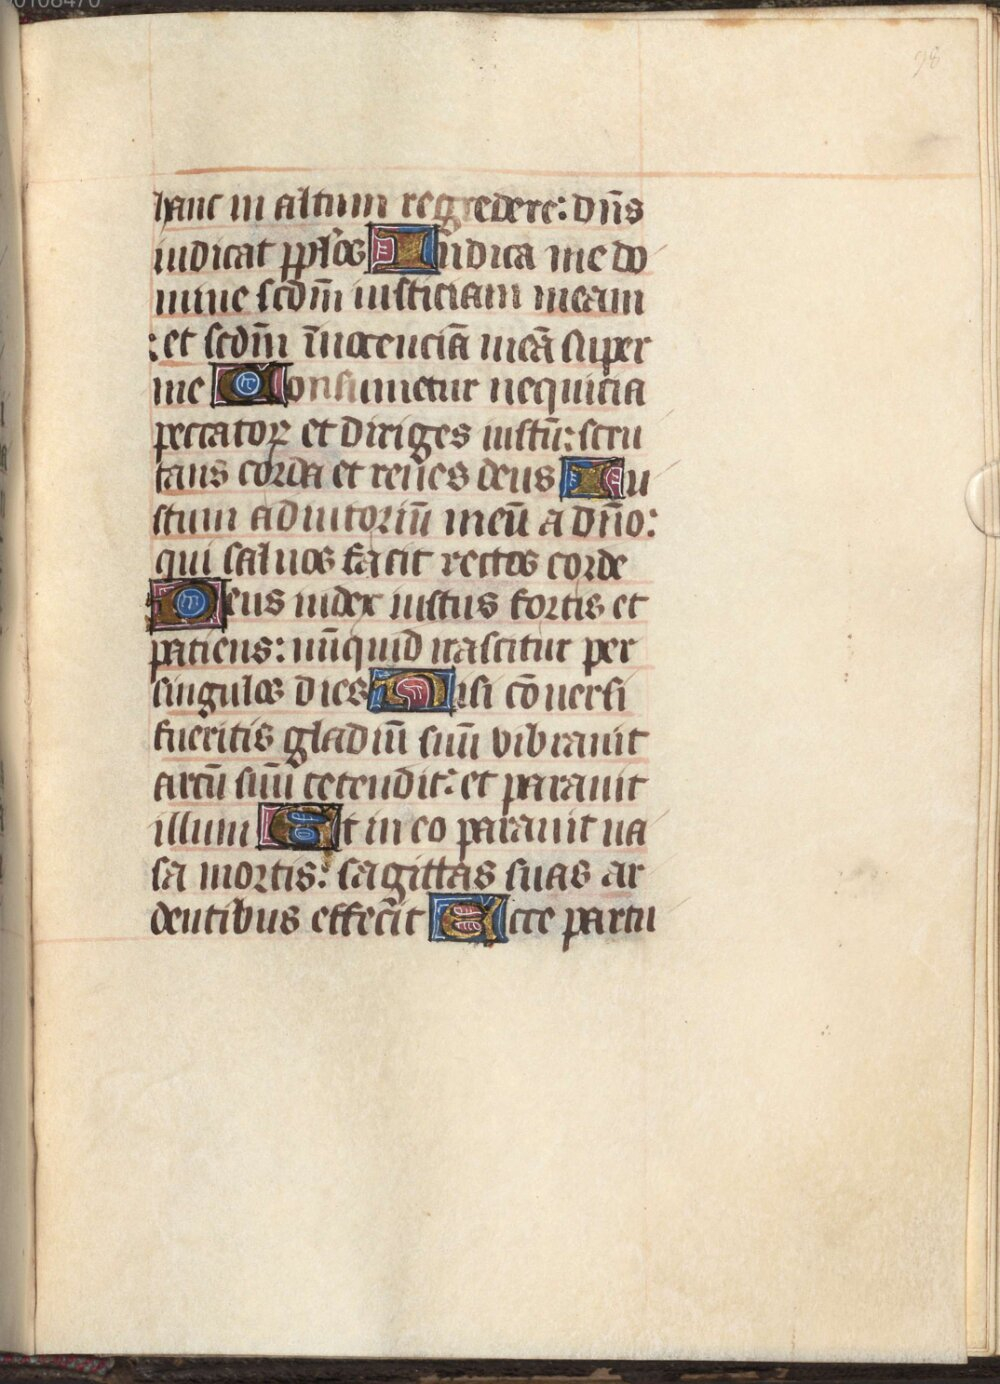 hanc in altum regredere: dn̄s
iudicat pp̄los Iudica me do
mine scdm̄ iusticiam meam
et scdm̄ īnocenciā meā super
me Consumetur nequicia
peccatoꝝ et diriges iustū: scru
tans corda et renes deus Iu
stum adiutoriū meū a dn̄o:
qui saluos facit rectos corde
Deus iudex iustus fortis et
patiens: nūquid irascitur per
singulos dies Nisi cōuersi
fueritis gladiū suū vibrauit
arcū suū tetendit: et parauit
illum Et in eo parauit ua
sa mortis: sagittas suas ar
dentibus effecit Ecce partu
98